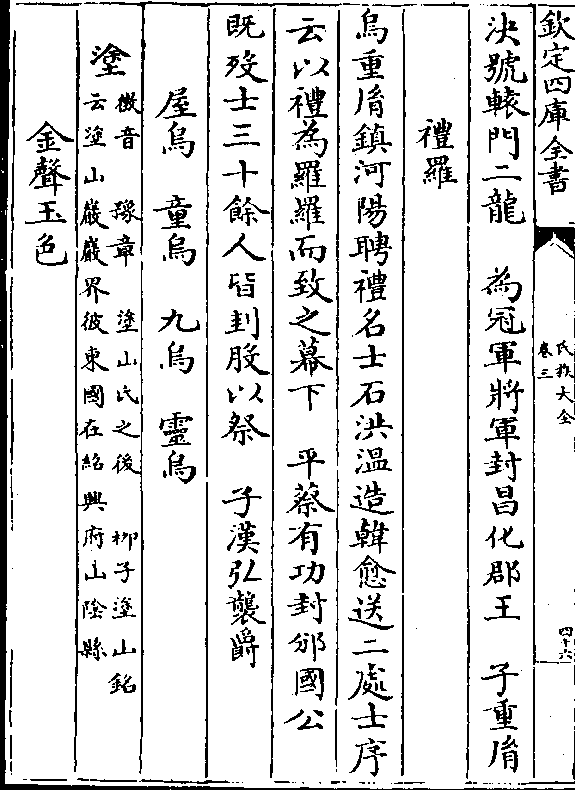 欽定四庫全書
氏族大全
卷三
四十六
決號轅門二龍　為冠軍將軍封昌化郡王　子重胤
禮羅
烏重胤鎮河陽聘禮名士石洪温造韓愈送二處士序
云以禮為羅羅而致之幕下　平蔡有功封邠國公
既歿士三十餘人皆刲股以祭　子漢弘襲爵
屋烏　童烏　九烏　靈烏
塗
徵音　豫章　塗山氏之後　柳子塗山銘
云塗山巖巖界彼東國在紹興府山陰縣
金聲玉色